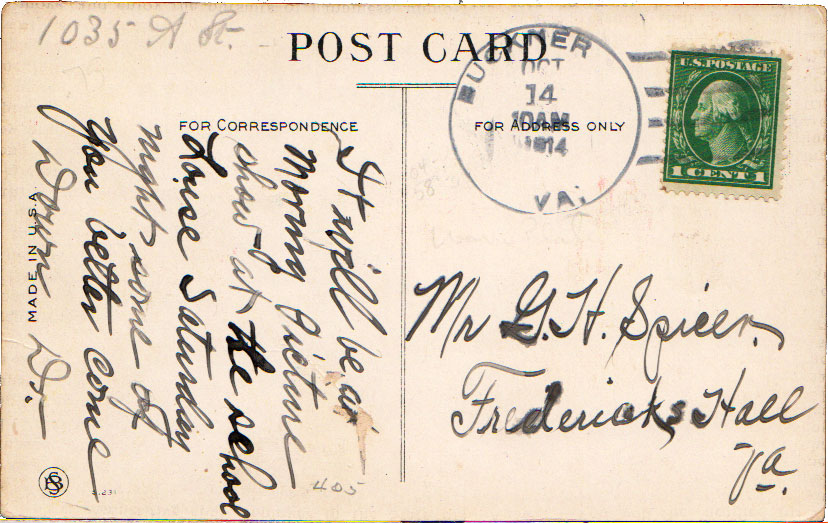 1035 A St.
POST CARD
FOR CORRESPONDENCE
FOR ADDRESS ONLY
BUCKNER
OCT
14
10AM
1914
VA.
U.S. POSTAGE
1 CENT 1
It will be a
Moving Picture
show at the school
House Saturday
night some of
you better come
Down D.-
Mr G. H. Spicer.
Fredericks Hall
Va.
MADE IN U.S.A.
405